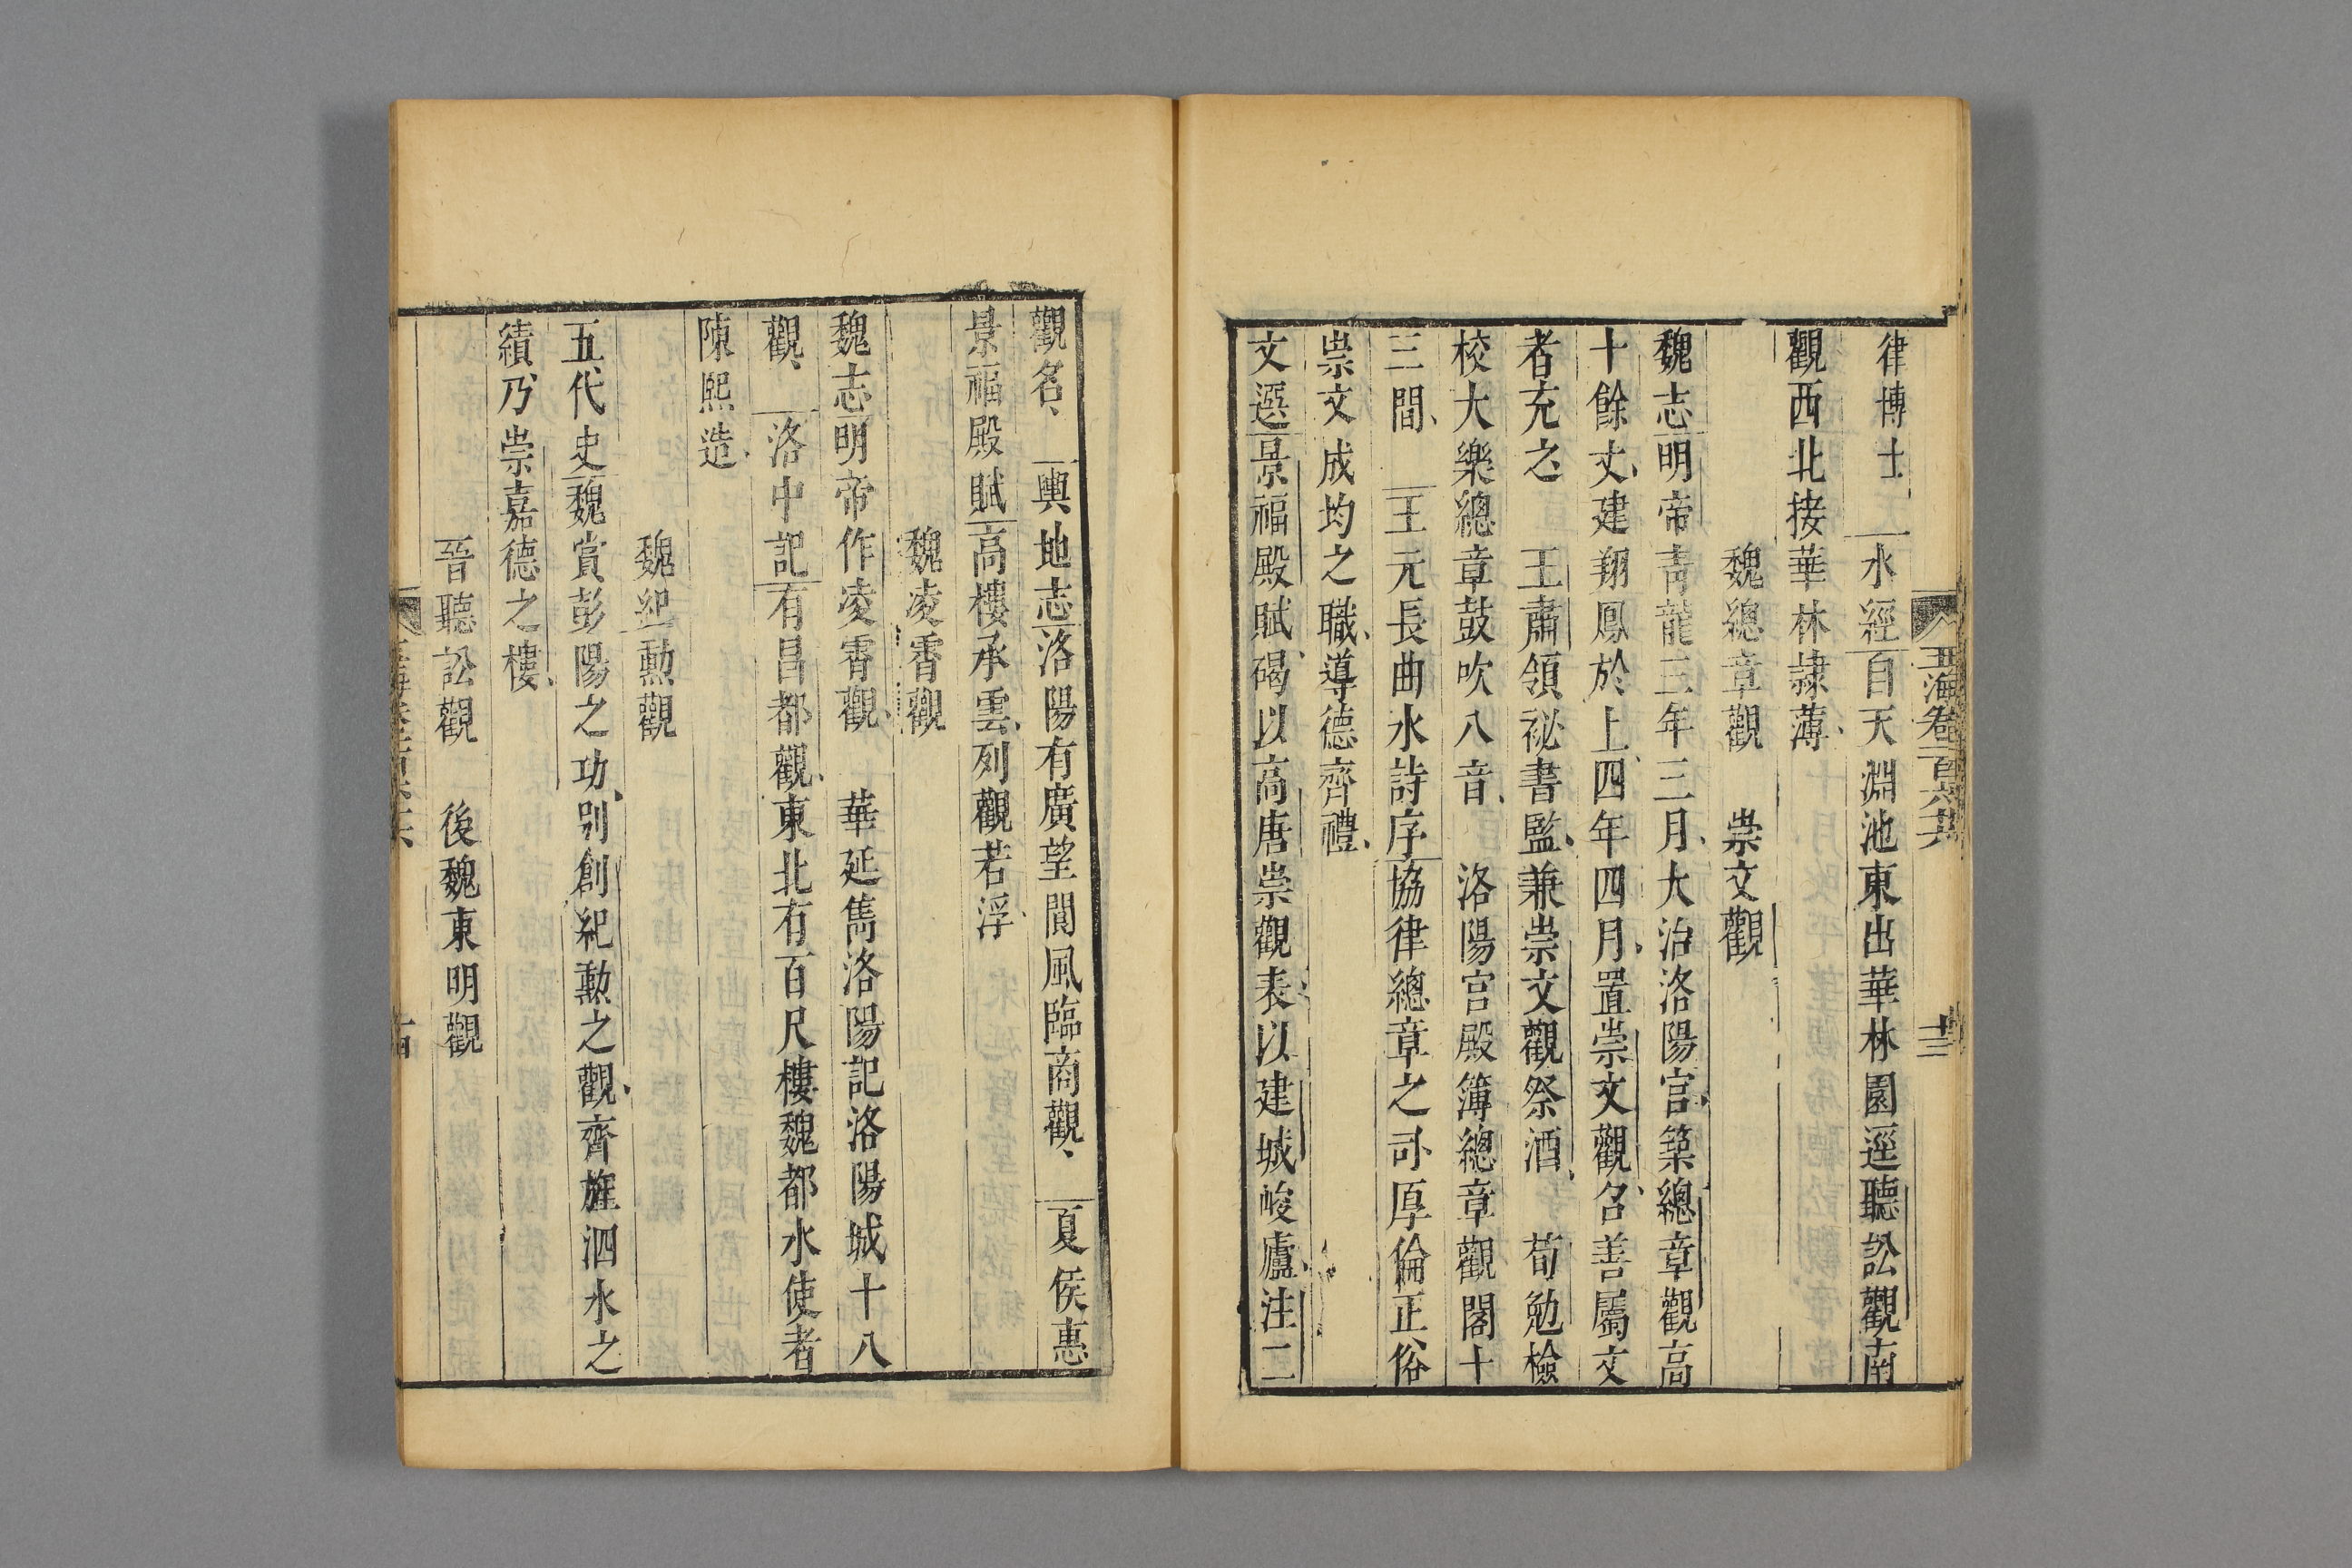 玉海卷一百六十六
十三
律博士水經自天淵池東出華林園逕聽訟觀南
觀西北接華林隷薄
魏總章觀　崇文觀
魏志明帝靑龍三年三月大治洛陽宫築總章觀高
十餘丈建翔鳳於上四年四月置崇文觀名善屬文
者充之　王肅領祕書監兼崇文觀祭酒　荀勉檢
校大樂總章鼓吹八音　洛陽宫殿簿總章觀閣十
三間　王元長曲水詩序協律總章之司厚倫正俗
崇文成均之職導德齊禮
文選景福殿賦碣以高唐崇觀表以建城峻廬注二
觀名　輿地志洛陽有廣望閬風臨商觀　夏侯惠
景福殿賦高樓承雲列觀若浮
魏凌霄觀
魏志明帝作凌霄觀　華延雋洛陽記洛陽城十八
觀　洛中記有昌都觀東北有百尺樓魏都水使者
陳熙造
魏紀勲觀
五代史魏賞彭陽之功別創紀勲之觀齊旌泗水之
績乃崇嘉德之樓
晉聽訟觀　後魏東明觀
十四